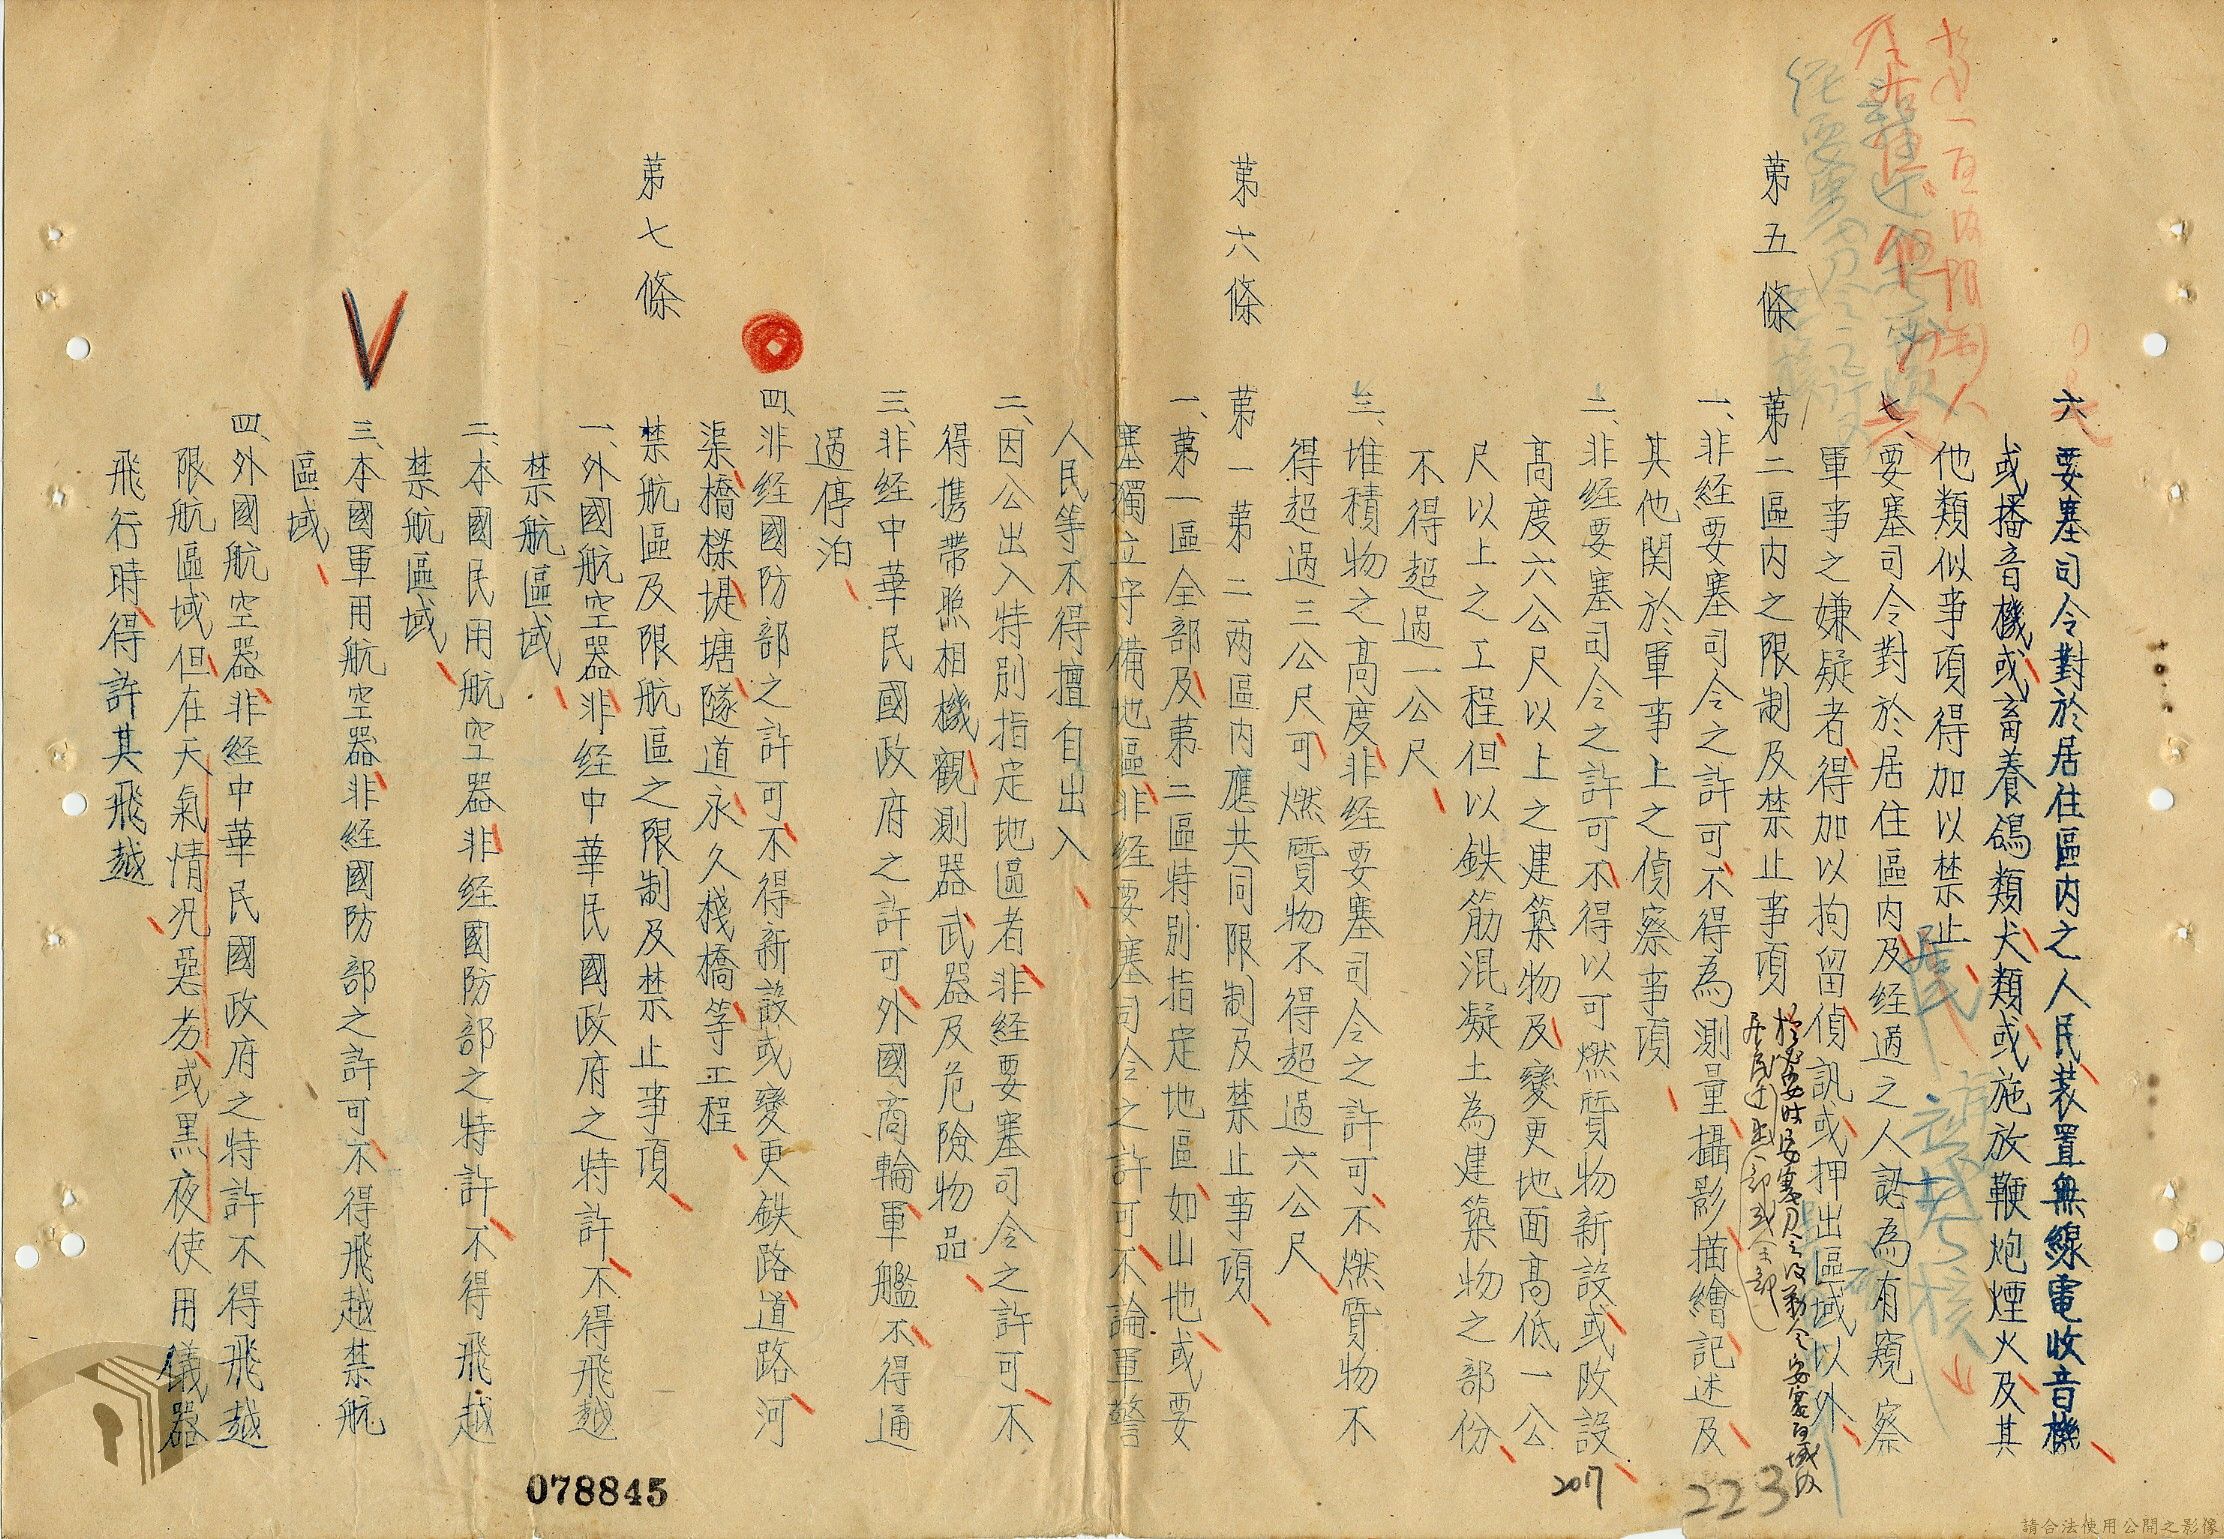 六、要塞司令對於居住區内之人民裝置無線電收音機
或播音機或畜養鴿類犬類或施放鞭炮煙火及其
他類似事項得加以禁止
七、要塞司令對於居住區内及経過之人認為有窺察
軍事之嫌疑者得加以拘留偵訊或押出區域以外
第五條
第二區内之限制及禁止事項
一、非経要塞司令之許可不得為測量攝影描繪記述及
其他関於軍事上之偵察事項
二、非経要塞司令之許可不得以可燃質物新設或改設
高度六公尺以上之建築物及變更地面高低一公
尺以上之工程但以鉄筋混凝土為建築物之部份
不得超過一公尺
三、堆積物之高度非経要塞司令之許可不燃質物不
得超過三公尺可燃質物不得超過六公尺
第六條
第一第二两區内應共同限制及禁止事項
一、第一區全部及第二區特別指定地區如山地或要
塞獨立守備地區非経要塞司令之許可不論軍警
人民等不得擅自出入
二、因公出入特別指定地區者非経要塞司令之許可不
得携帶照相機觀測器武器及危險物品
三、非経中華民國政府之許可外國商輪軍艦不得通
過停泊
四、非経國防部之許可不得新設或變更鉄路道路河
渠橋樑堤塘隧道永久棧橋等工程
第七條
禁航區及限航區之限制及禁止事項
一、外國航空器非経中華民國政府之特許不得飛越
禁航區域
二、本國民用航空器非経國防部之特許不得飛越
禁航區域
三、本國軍用航空器非経國防部之許可不得飛越禁航
區域
四、外國航空器非経中華民國政府之特許不得飛越
限航區域但在天氣情况惡劣或黑夜使用儀器
飛行時得許其飛越
078845
207
223
請合法使用公開之影像